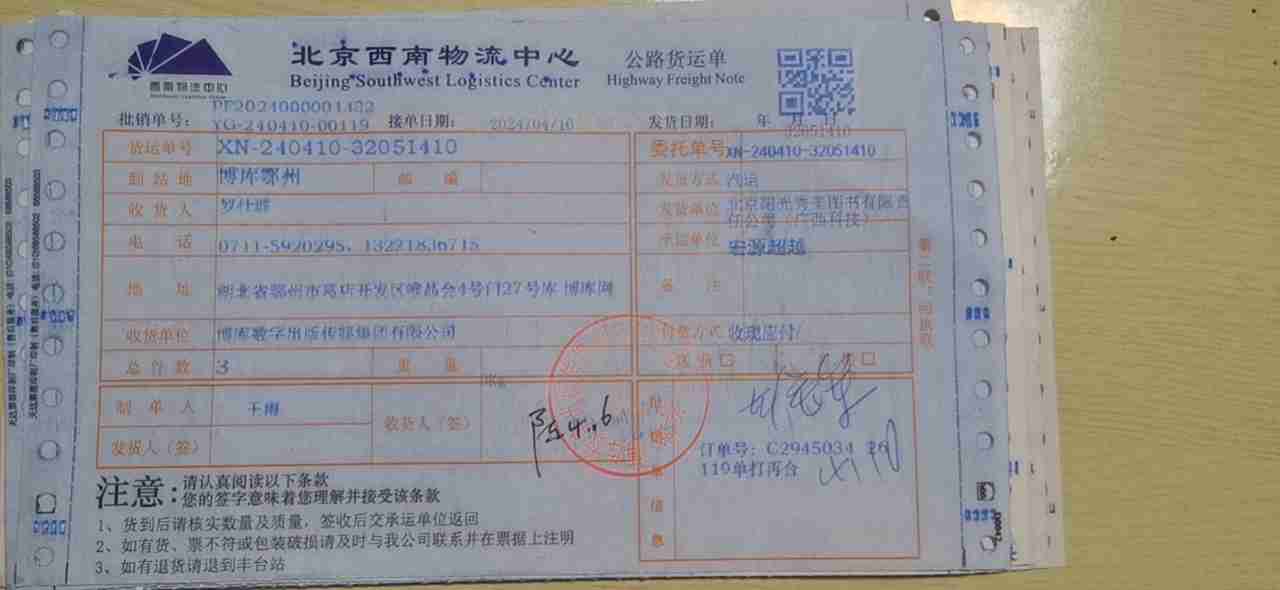 西南物流中心
北京西南物流中心
Beijing Southwest Logistics Center
公路货运单
Highway Freight Note
PF2024000001432
批销单号: YG-240410-00119 接单日期: 2024/04/10 发货日期: 年 月 日
32051410
货运单号 XN-240410-32051410 委托单号 XN-240410-32051410
到站地 博库鄂州 邮 编 发货方式 汽运
收货人 发货单位 北京阳光秀美图书有限责任公司(广西科技)
电 话 0711-5920295、13221836715 承运单位 宏源超越
地 址 湖北省鄂州市葛店开发区唯品会4号门27号库 博库网 备 注
收货单位 博库数字出版传媒集团有限公司 付费方式 收现应付/
总件数 3 重 量 KG 送货 □ □
制单人 王雨 收货人(签) 陈 4.6
发货人(签)
订单号: C2945034
119单打再台
信息
第二联:回执联
注意: 请认真阅读以下条款
您的签字意味着您理解并接受该条款
1、货到后请核实数量及质量,签收后交承运单位返回
2、如有货、票不符或包装破损请及时与我公司联系并在票据上注明
3、如有退货请退到丰台站